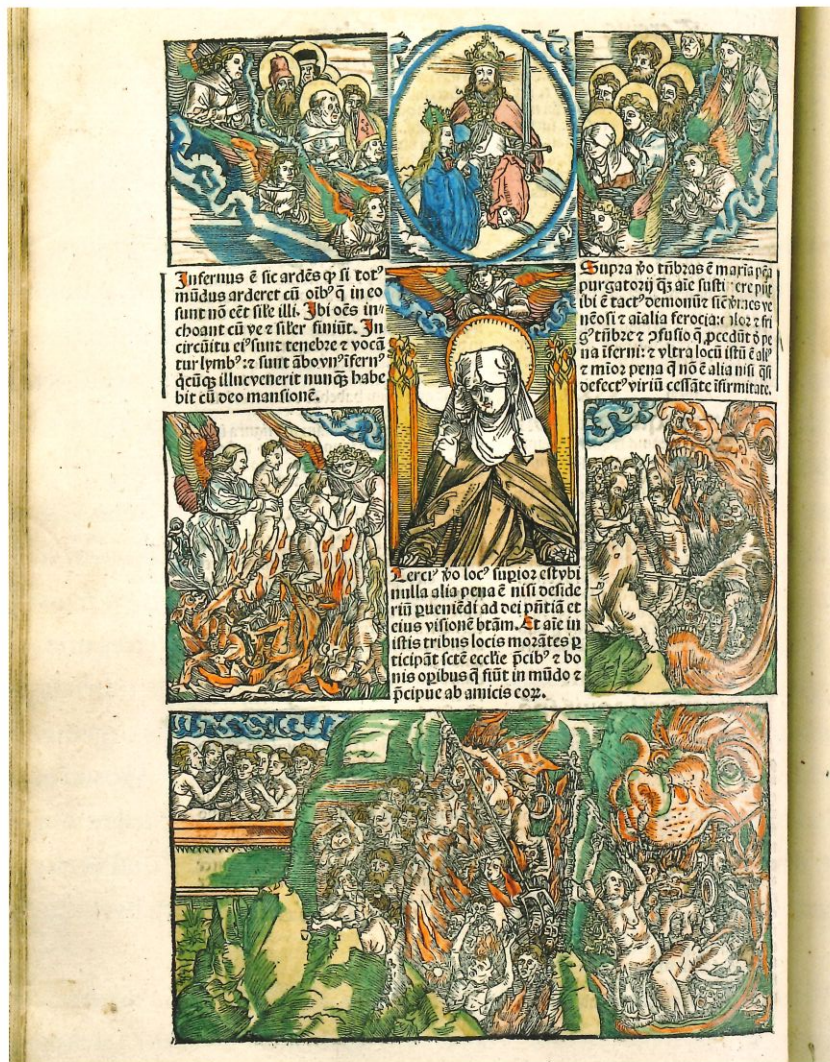 Infernus ē sic ardēs ꝙ si totꝰ
mūdus arderet cū oībꝰ q̄ in eo
sunt nō eēt sił'e illi. Ibi oēs in⸗
choant cū ve ⁊ sił'er finiūt. In
circūitu eiꝰ sunt tenebre ⁊ vocā
tur lymbꝰ: ⁊ sunt ābo vnꝰ īfernꝰ
q̇cūqꝫ illuc venerit nunqꝫ habe
bit cū deo mansionē.
Supra ꝟo tn̄bras ē maxīa pēa
purgatorij qꝫ aīe susti ere pn̄t
ibi ē tactꝰ demonuꝫ
nēosi ⁊ aīalia ferocia: lor ⁊ fri
gꝰ tn̄bre ⁊ ꝯfusio q̄ ꝓcedūt ð pe
na īferni: ⁊ vltra locū istū ē aliꝰ
⁊ mīor pena q̄ nō ē alia nisi q̄si
defectꝰ viriū cessāte īfirmitate.
Terciꝰ ꝟo locꝰ suꝑior est vbi
nulla alia pena ē nisi deside
riū ꝑueniēdi ad dei pn̄tiā et
eius visionē btām. Et aīe in
istis tribus locis morātes ꝑ
ticipāt scte ecclīe p̄cibꝰ ⁊ bo
nis oꝑibus q̄ fiūt in mūdo ⁊
p̄cipue ab amicis coꝝ.